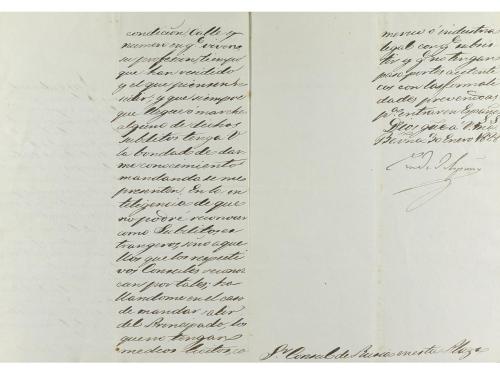 condicion, Calle, y
numero en q.e viven
su profesion, tiempo
que han residido
y el que piensan re
sidir, y que siempre
que llegue ó marche
alguno de dichos
Subditos tenga V.
la bondad de dar
me conocimiento
mandando se me
presenten; En la in
teligencia de que
no podré reconocer
como Subditos es
trangeros, sino aque
llos que los respecti
vos Consules recono
can por tales; ha
llandome en el caso
de mandar salir
del Principado, los
que no tengan
medios licitos, co
mercio ó industria
legal con q.e subsis
tir y q.e no tengan
pasaportes autenti
cos con las formali
dades prevenidas
p.a entrar en España
Dios gue á V. m.s a.s
Enero 1828
S.r Consul de en esta Plaza